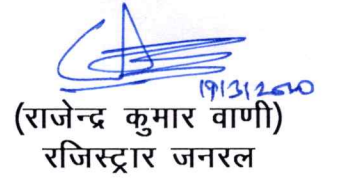 19/3/2020
(राजेन्द्र कुमार वाणी)
रजिस्ट्रार जनरल